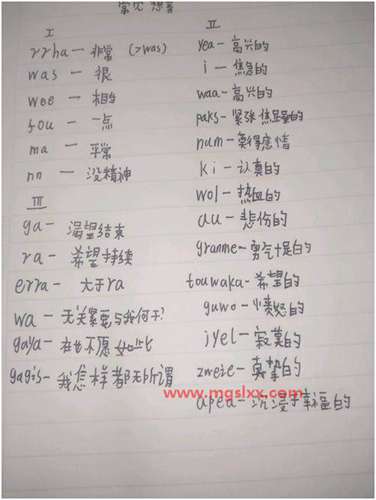 常见
I
rrha — 非常 (>was)
was — 很
wee — 相当
fou — 一点
ma — 平常
nn — 没精神
III
ga — 渴望结束
ra — 希望持续
erra — 大于ra
wa — 无关紧要与我何干?
gaya — 不愿如此
gagis — 我怎样都无所谓
II
yea - 高兴的
i - 焦急的
waa - 高兴的
paks - 紧张
num - 莫得感情
ki - 认真的
wol - 热血的
au - 悲伤的
granme - 勇气
touwaka - 希望的
guwo - 愤怒的
iyel - 寂寞的
zweie - 真挚的
www.mgslxx.com
apea - 沉浸于幸福的